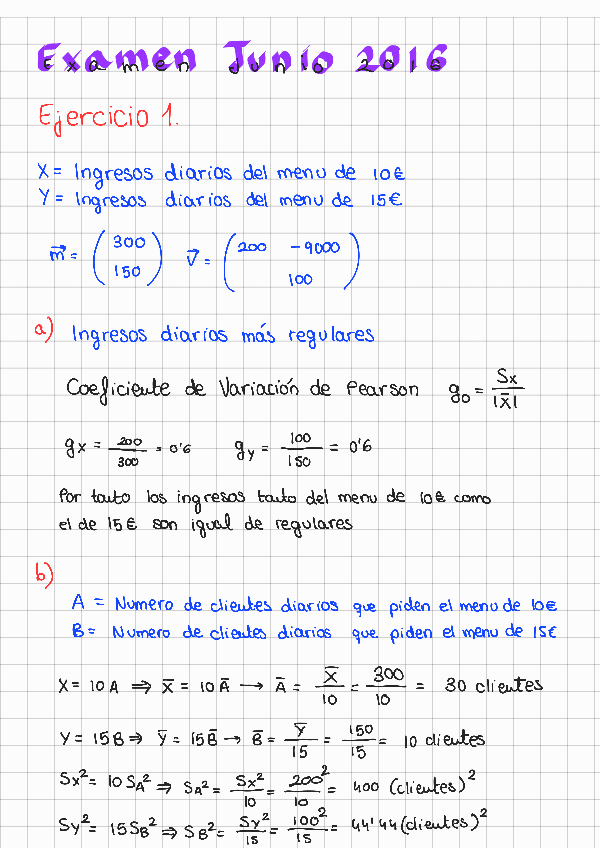 Examen Junio 2016
Ejercicio 1.
X = Ingresos diarios del menu de 10€
Y = Ingresos diarios del menu de 15€
m⃗ = (300 150) v⃗ = (200 -9000 100)
a) Ingresos diarios más regulares
Coeficiente de Variación de Pearson g₀ = Sx / |X̄|
gx = 200/300 = 0'6 gy = 100/150 = 0'6
Por tanto los ingresos tanto del menu de 10€ como
el de 15€ son igual de regulares
b)
A = Numero de clientes diarios que piden el menu de 10€
B = Numero de clientes diarios que piden el menu de 15€
X = 10A ⇒ X̄ = 10Ā → Ā = X̄/10 = 300/10 = 30 clientes
Y = 15B ⇒ Ȳ = 15B̄ → B̄ = Ȳ/15 = 150/15 = 10 clientes
Sx² = 10SA² ⇒ SA² = Sx²/10 = 200²/10 = 400 (clientes)²
Sy² = 15SB² ⇒ SB² = Sy²/15 = 100²/15 = 44'44 (clientes)²